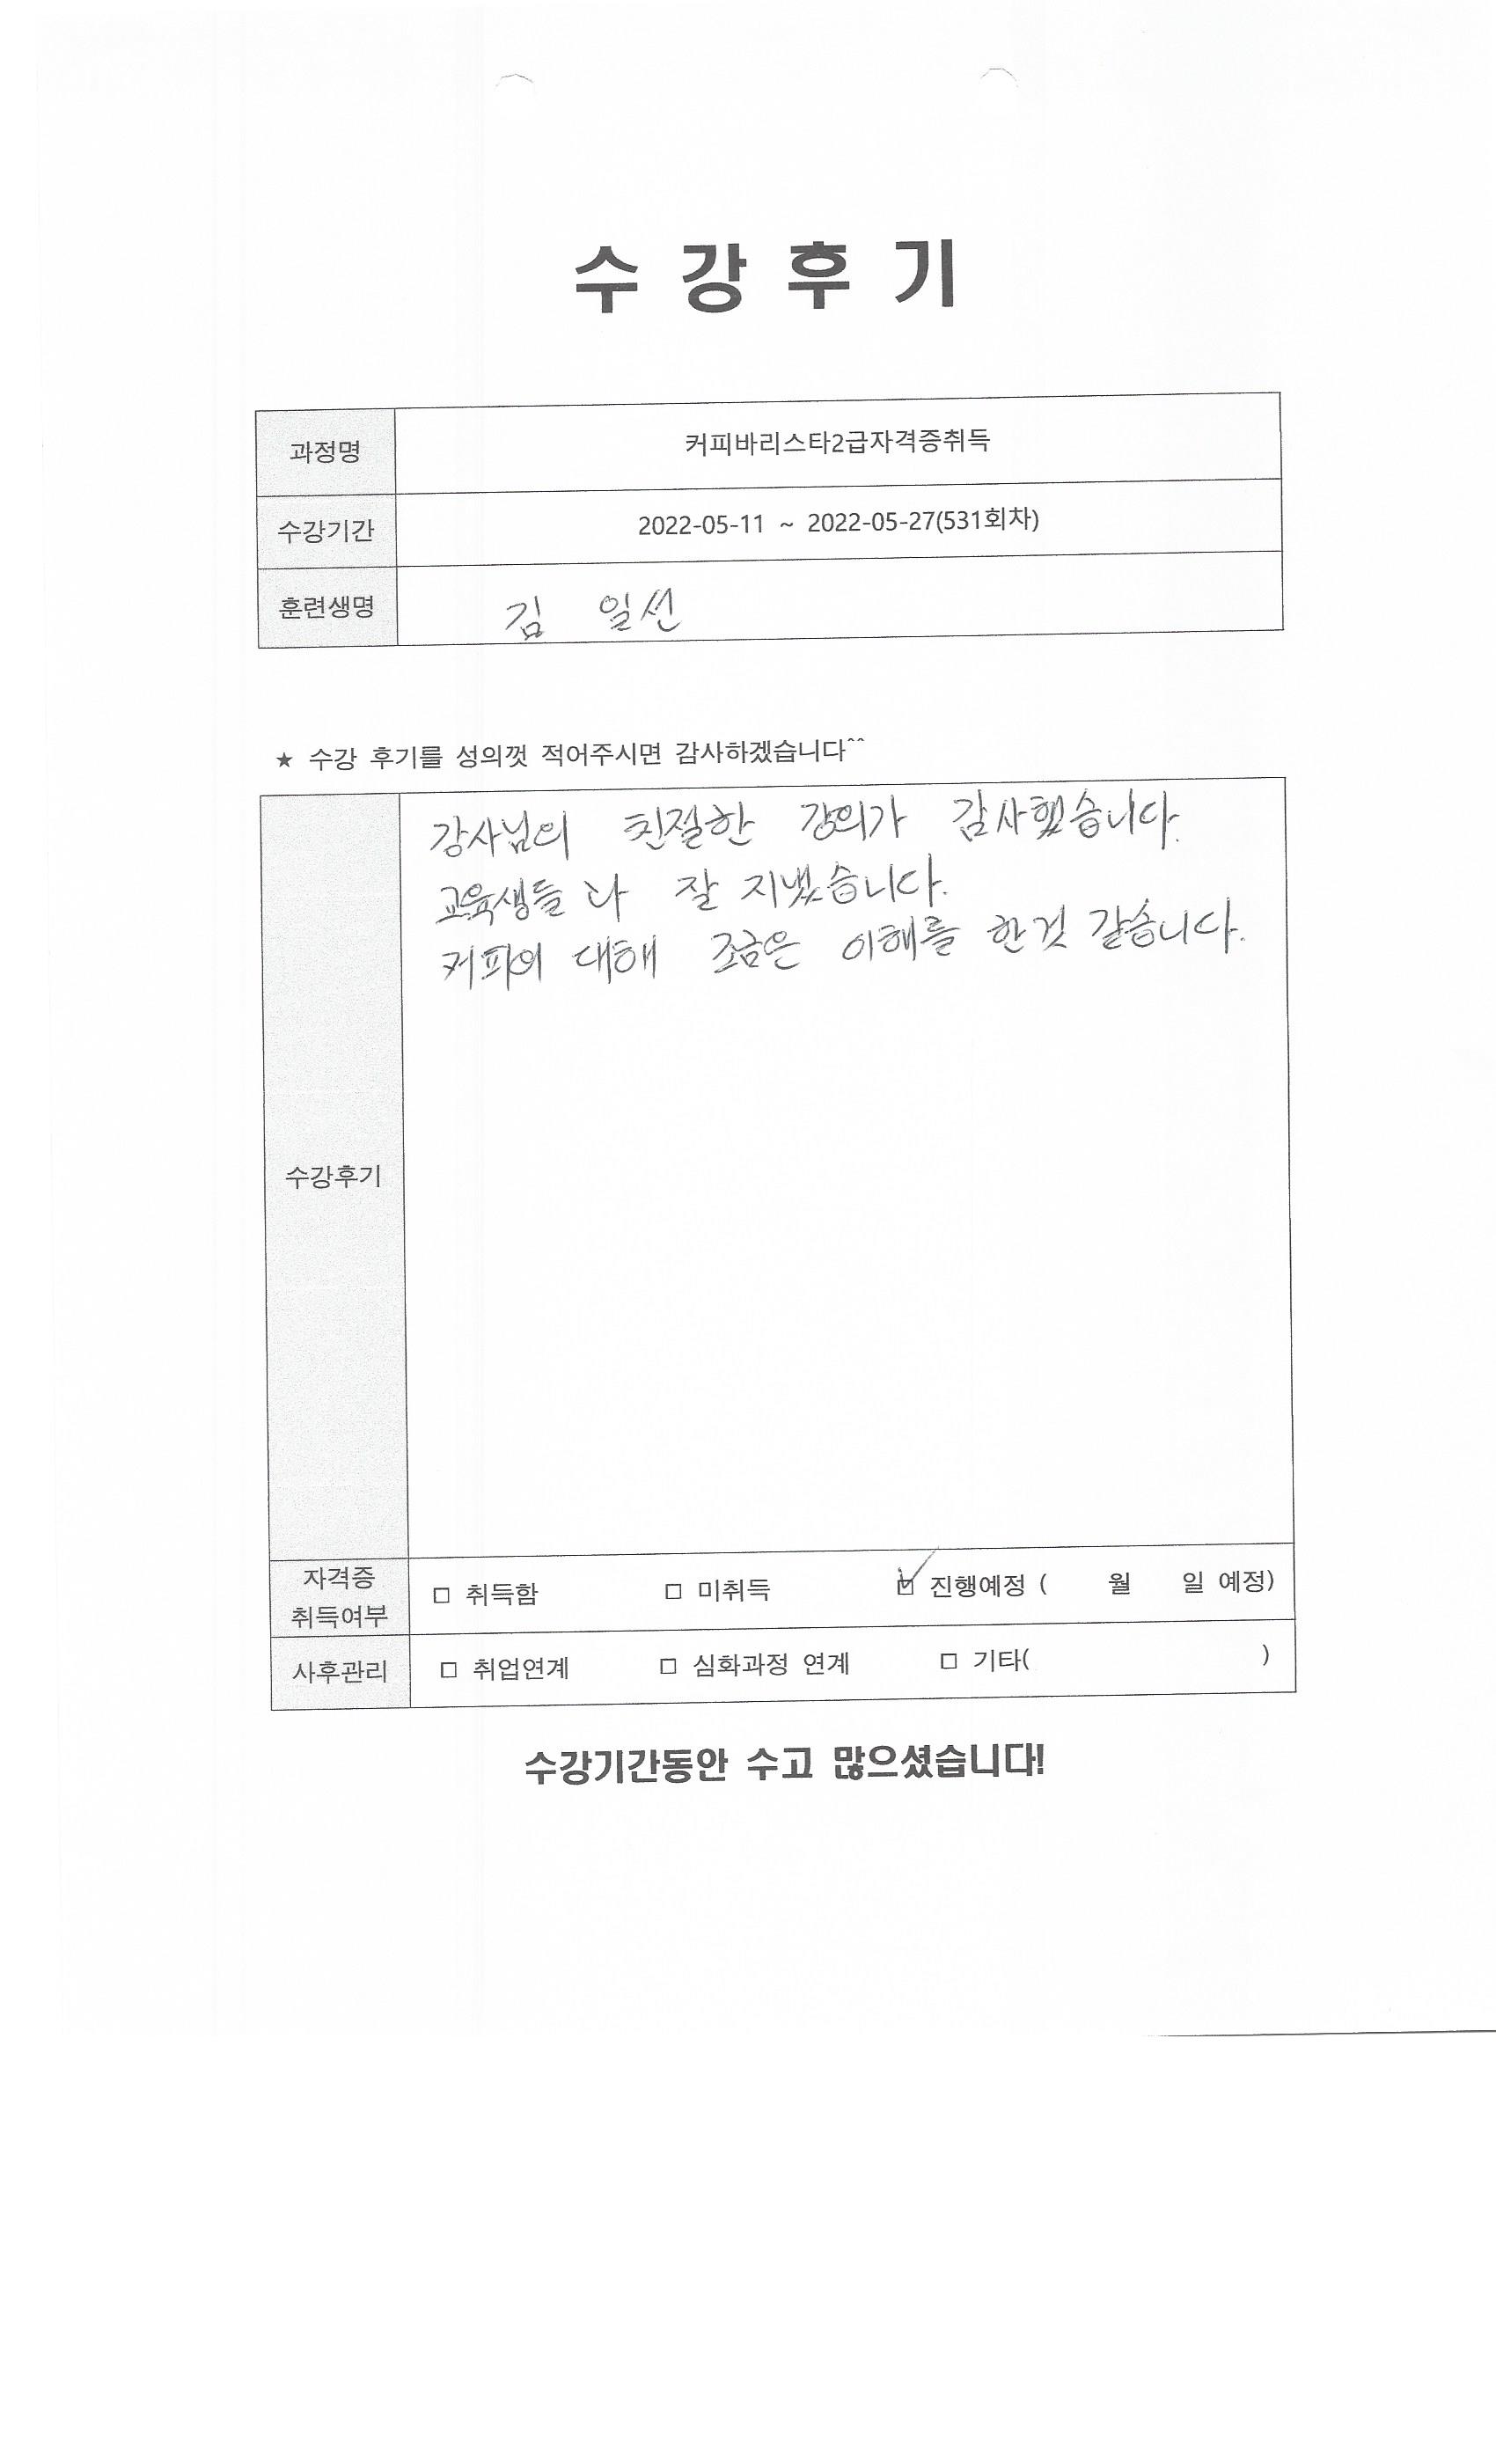 수 강 후 기
과정명 커피바리스타2급자격증취득
수강기간 2022-05-11 ~ 2022-05-27(531회차)
훈련생명 김 일선
★ 수강 후기를 성의껏 적어주시면 감사하겠습니다^^
강사님의 친절한 강의가 감사했습니다.
교육생들과 잘 지냈습니다.
커피의 대해 조금은 이해를 한것 같습니다.
수강후기
자격증
취득여부
□ 취득함 □ 미취득 ☑ 진행예정 ( 월 일 예정)
사후관리 □ 취업연계 □ 심화과정 연계 □ 기타( )
수강기간동안 수고 많으셨습니다!